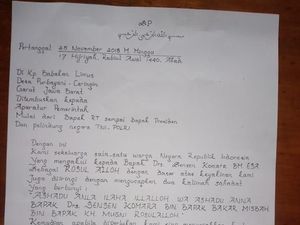 بسم الله الرحمن الرحيم
Pertanggal 25 November 2018 M Minggu
17 Hijriyah, Rabiul Awal 1440, Ahad
Di Kp Babakan Limus
Desa Purbayani - Caringin
Garut Jawa Barat
Disembahkan kepada
Aparatur Pemerintah
Mulai dari Bapak RT sampai Bapak Presiden
Dan pelindung negara TNI, POLRI
Dengan ini
Kami sekeluarga salah satu warga Negara Republik Indonesia
Yang mengakui kepada Bapak Drs Sensen Komara BM ESA
Sebagai ROSUL ALLOH dengan dasar atas keyakinan kami
Juga diiringi dengan mengucapkan dua kalimah sahadat
Yang berbunyi :
"ASHADU ANLA ILAHA ILALLAH WA ASHADU ANNA
BAPAK Drs SENSEN KOMARA BIN BAPAK BAKAR MISBAH
BIN BAPAK KH MUSNI ROSULALLOH"